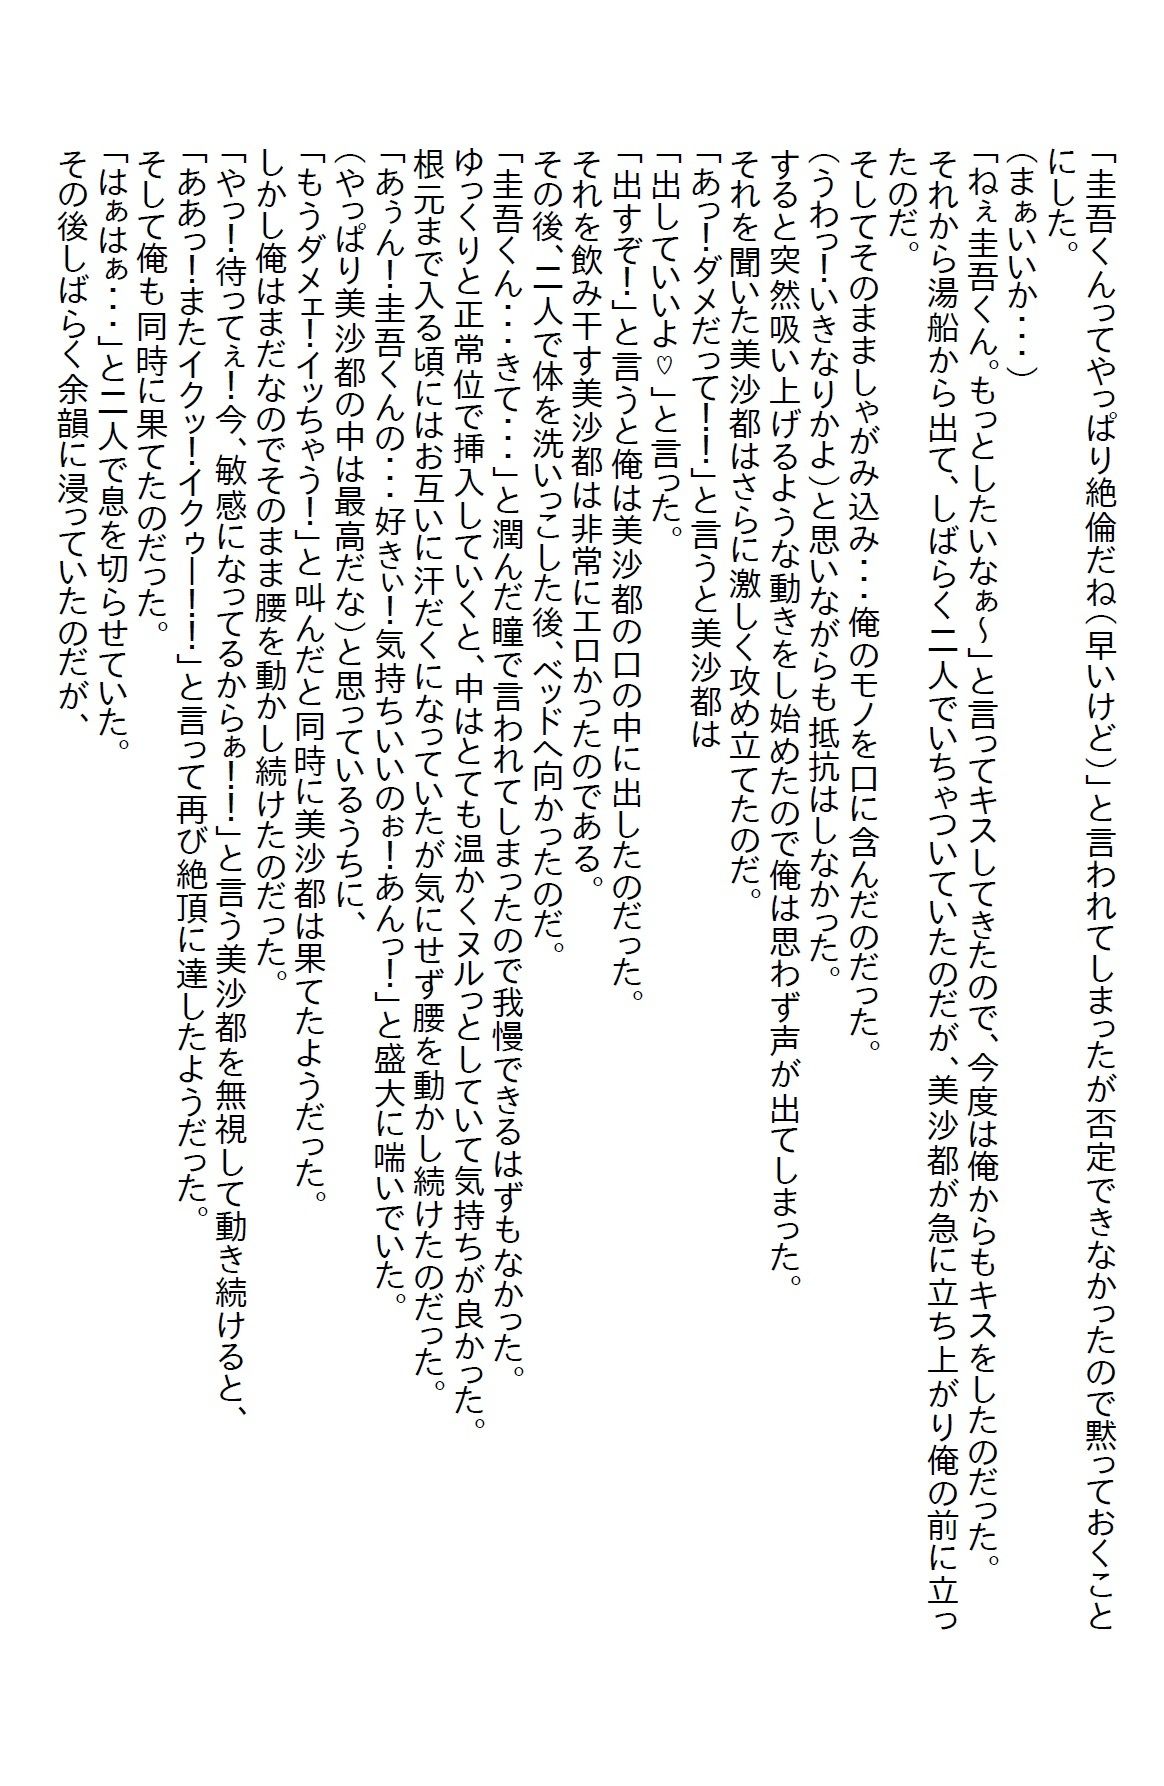 「圭吾くんってやっぱり絶倫だね（早いけど）」と言われてしまったが否定できなかったので黙っておくこと
にした。
（まぁいいか・・・）
「ねぇ圭吾くん。もっとしたいなぁ～」と言ってキスしてきたので、今度は俺からもキスをしたのだった。
それから湯船から出て、しばらく二人でいちゃついていたのだが、美沙都が急に立ち上がり俺の前に立っ
たのだ。
そしてそのまましゃがみ込み・・・俺のモノを口に含んだのだった。
（うわっ！いきなりかよ）と思いながらも抵抗はしなかった。
すると突然吸い上げるような動きをし始めたので俺は思わず声が出てしまった。
それを聞いた美沙都はさらに激しく攻め立てたのだ。
「あっ！ダメだって！！」と言うと美沙都は
「出していいよ♡」と言った。
「出すぞ！」と言うと俺は美沙都の口の中に出したのだった。
それを飲み干す美沙都は非常にエロかったのである。
その後、二人で体を洗いっこした後、ベッドへ向かったのだ。
「圭吾くん・・・きて・・・」と潤んだ瞳で言われてしまったので我慢できるはずもなかった。
ゆっくりと正常位で挿入していくと、中はとても温かくヌルっとしていて気持ちが良かった。
根元まで入る頃にはお互いに汗だくになっていたが気にせず腰を動かし続けたのだった。
「あぅん！圭吾くんの・・・好きぃ！気持ちいいのぉ！あんっ！」と盛大に喘いでいた。
（やっぱり美沙都の中は最高だな）と思っているうちに、
「もうダメェ！イッちゃう！」と叫んだと同時に美沙都は果てたようだった。
しかし俺はまだなのでそのまま腰を動かし続けたのだった。
「やっ！待ってぇ！今、敏感になってるからぁ！！」と言う美沙都を無視して動き続けると、
「ああっ！またイクッ！イクゥー！！」と言って再び絶頂に達したようだった。
そして俺も同時に果てたのだった。
「はぁはぁ・・・」と二人で息を切らせていた。
その後しばらく余韻に浸っていたのだが、